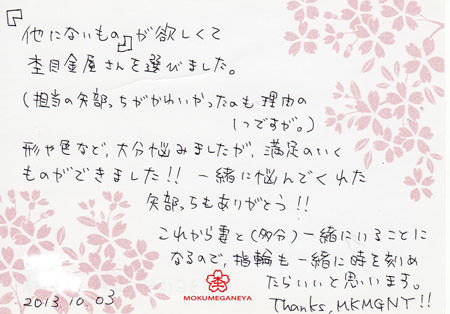 『他にないもの』が欲しくて
杢目金屋さんを選びました。
(担当の矢部っちがかわいかったのも理由の
1つですが。)
形や色など、大分悩みましたが、満足のいく
ものができました!! 一緒に悩んでくれた
矢部っちもありがとう!!
これから妻と(多分)一緒にいることに
なるので、指輪も一緒に時を刻め
たらいいと思います。
2013.10.03
MOKUMEGANEYA
Thanks, MKMGNY!!